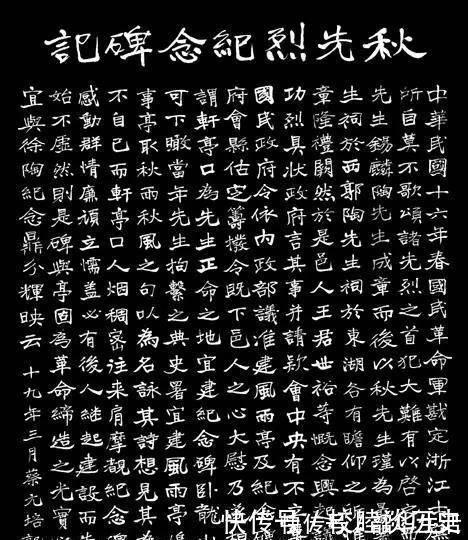 秋先烈紀念碑記
中華民國十六年春國民革命軍戡定浙江
所目莫不歌頌諸先烈之首犯大難有以啓
先生錫麟陶先生成章而後以秋先生瑾為最
生祠於西郭陶先生祠於東湖各有瞻仰之所
章隆禮闕然於是邑人王君世裕等慨念興起
功烈具狀政府言其事并請款會中央有不
國民政府令依內政部議准建風雨亭及紀念
府會縣估定籌撥令既下邑人之心大慰乃
謂軒亭口為先生正命之地宜建紀念碑卧龍山
可下瞰當年先生拘繫之典史署宜建風雨亭
事亭取秋雨秋風之句以為名詠其詩想見其
不自已而軒亭口人烟稠密往來肩摩覩紀念
感動群情廉頑立懦蓋必有後人繼起建設而
始不虛然則是碑與亭固為革命締造之光實
宜與徐陶紀念鼎分輝映云 十九年三月蔡元培
快传号